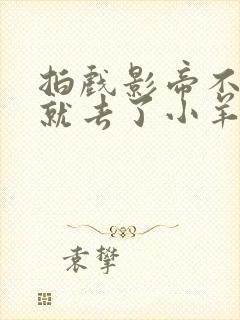 拍戏影帝不
就去了小羊
袁攀